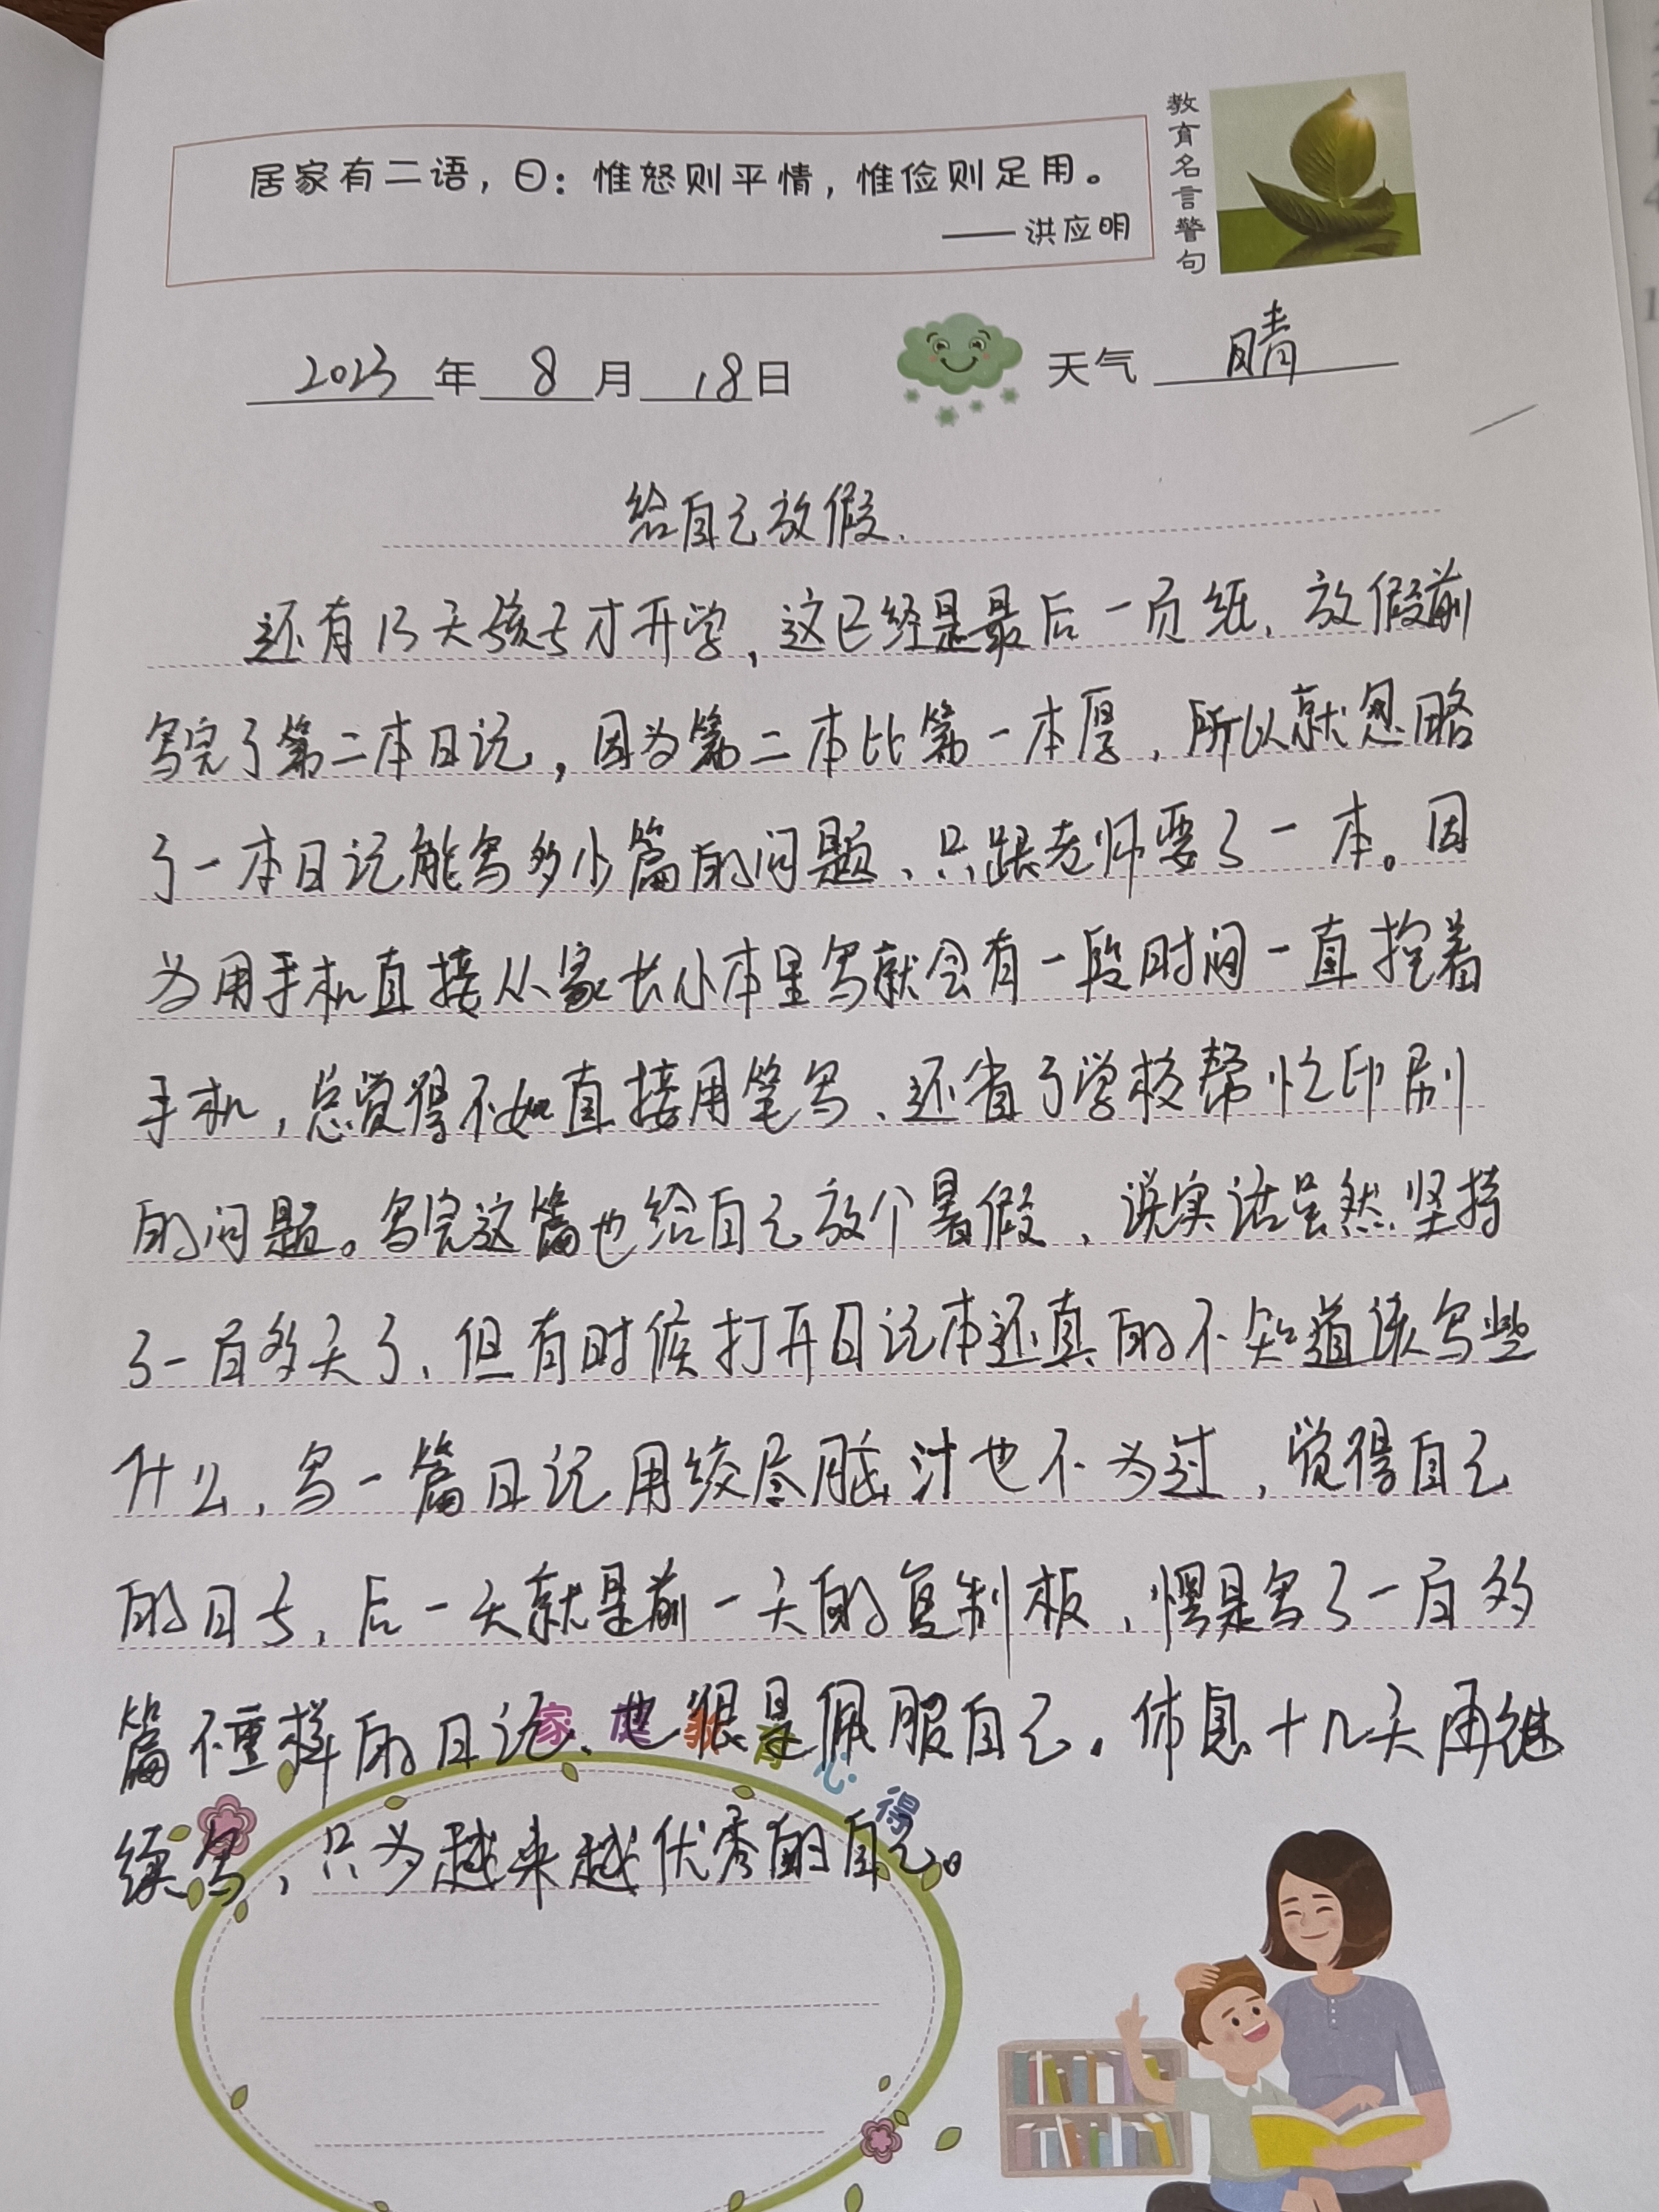 居家有二语，曰：惟怒则平情，惟俭则足用。
——洪应明
教育名言警句
2023年8月18日 天气 晴
给自己放假.
还有13天孩子才开学，这已经是最后一页纸、放假前
写完了第二本日记，因为第二本比第一本厚，所以就忽略
了一本日记能写多少篇的问题、只跟老师要了一本。因
为用手机直接从家长小本里写就会有一段时间一直抱着
手机，总觉得不如直接用笔写、还省了学校帮忙印刷
的问题。写完这篇也给自己放个暑假，说实话虽然坚持
了一百多天了，但有时候打开日记本还真的不知道该写些
什么，写一篇日记用绞尽脑汁也不为过，觉得自己
的日子，后一天就是前一天的复制板，愣是写了一百多
篇不重样的日记、也很是佩服自己。休息十几天再继
续写，只为越来越优秀的自己。
家庭教育心得